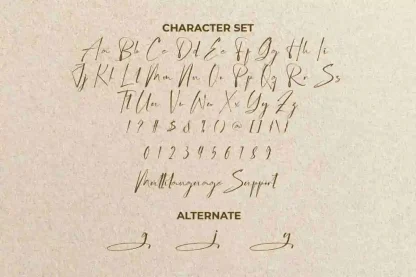 CHARACTER SET
Aa Bb Cc Dd Ee Ff Gg Hh Ii
Jj Kk Ll Mm Nn Oo Pp Qq Rr Ss
Tt Uu Vv Ww Xx Yy Zz
0 1 2 3 4 5 6 7 8 9
Support
ALTERNATE
g j y